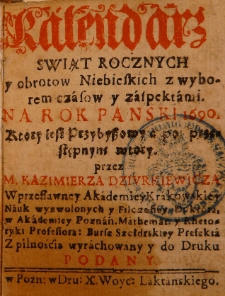 Kalendarz
SWIĄT ROCZNYCH
y obrotow Niebieskich z wybo-
rem czásow y záspektámi.
NA ROK PANSKI 1690.
Ktory iest Przybyszowy á po
stępnym wtory.
przez
M. KAZIMIERZA DZIURKIEWICZA
W przesławney Akademiey Krakowskiey
Nauk wyzwolonych y Filozofiey Doktorá,
w Akádemiey Poznáń. Mathemat: y Rheto-
ryki Professora: Bursę Szołdrskiey Prefektá
Z pilnoscią wyráchowány y do Druku
PODANY.
w Pozn: w Dru: X. Woyc: Laktánskiego.